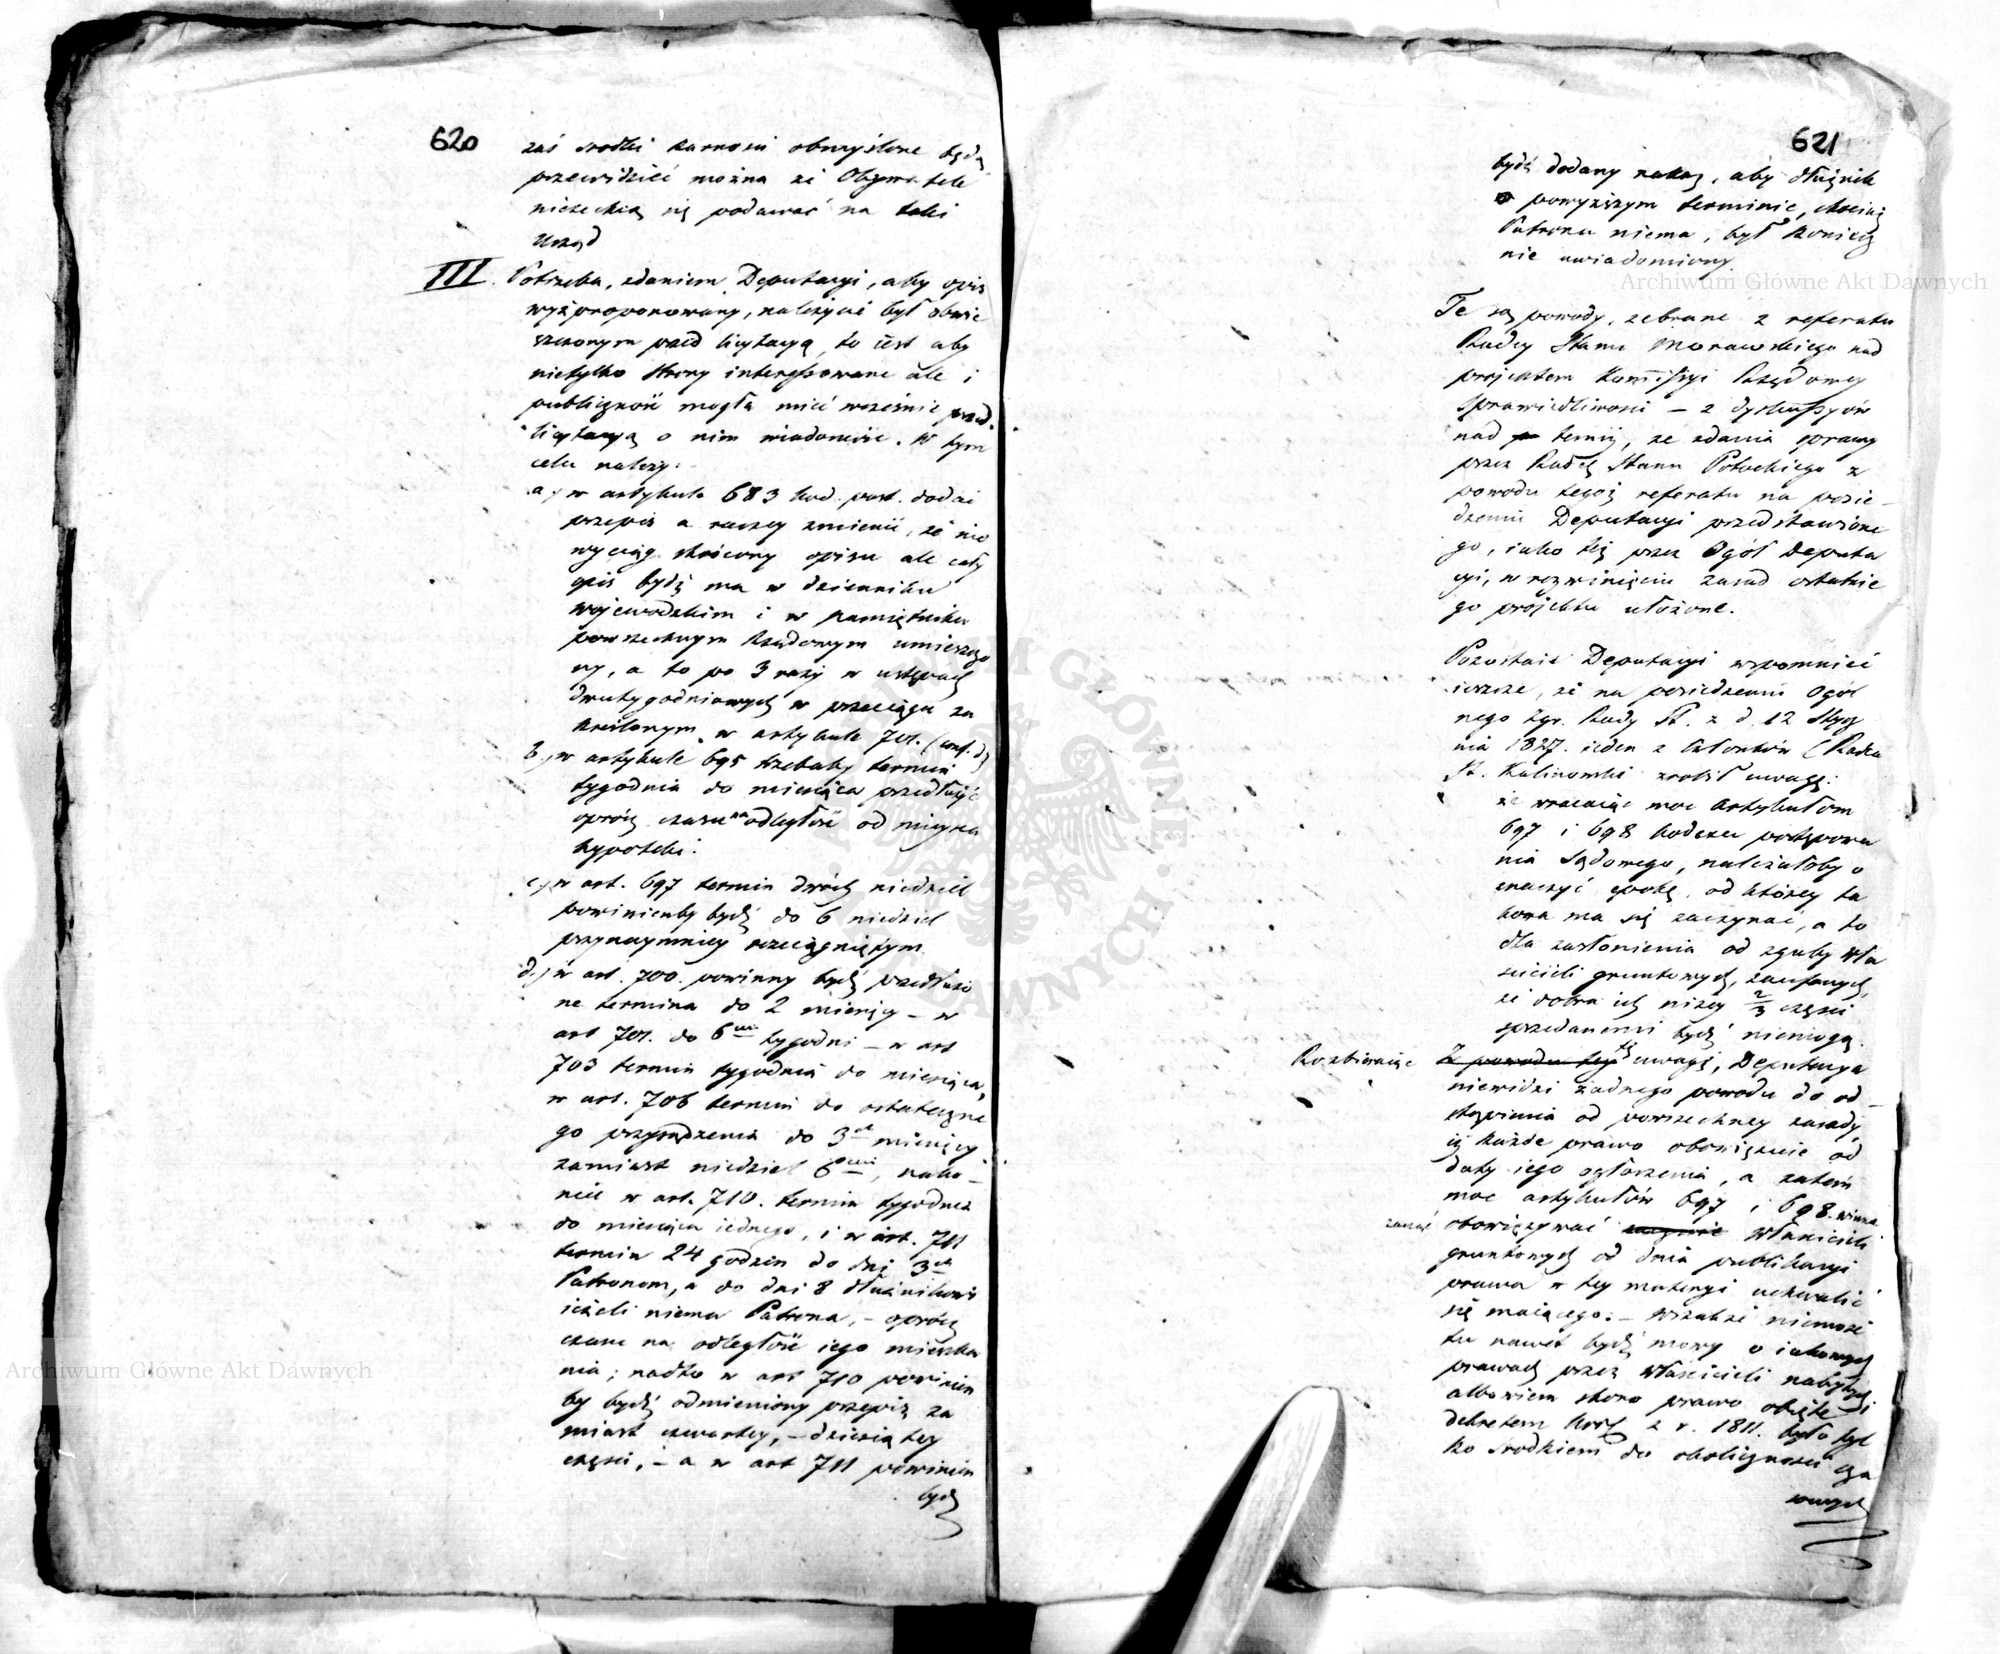 620
zaś srodki karności obmyślone będą
przewidzieć można że Obywatele
niezechcą się podawać na taki
Urząd
III. Potrzeba, zdaniem Deputacyi, aby opis
wyż proponowany, należycie był obwie
szczonym przed licytacyą, to iest aby
nietylko Strony interessowane ale i
publiczność mogła mieć wcześnie przed
licytacyą o nim wiadomość. W tym
celu należy:
a.) w artykule 683 kod. post. dodać
przepis a raczey zmienić, że nie
wyciąg skrócony opisu ale cały
opis bydź ma w dzienniku
wojewodzkim i w pamiętniku
powszechnym krajowym umieszczo
ny, a to po 3 razy w ustępach
dwutygodniowych w przeciągu za
kreślonym w artykule 701. (conf. d)
b.) w artykule 695 trzebaby termin
tygodnia do miesiąca przedłużyć
oprócz czasu na odległość od mieysca
hypoteki.
c.) w art. 697 termin dwóch niedziel
powinienby bydź do 6 niedziel
przynaymniey rozciągniętym.
d.) w art. 700. powinny bydź przedłużo
ne termina do 2 miesięcy – w
art 701. do 6ciu tygodni – w art
703 termin tygodnia do miesiąca,
w art. 706 termin do ostateczne
go przysądzenia do 3ch miesięcy
zamiast niedziel 6ciu, nako-
niec w art. 710. termin tygodnia
do miesiąca iednego, i w art. 711
termin 24 godzin do dni 3ch
Patronom, a do dni 8 dłużnikowi
ieżeli niema Patrona, – oprócz
czasu na odległość iego mieszka
nia; nadto w art 710 powinien
by bydź odmieniony przepis za
miast czwartey, – dziesiątey
części, – a w art 711 powinien
bydź
621
bydź dodany nakaz, aby dłużnik
o powyższym terminie, chociaż
Patrona niema, był koniecz
nie uwiadomiony.
Te są powody, zebrane z referatu
Radcy Stanu Morawskiego nad
projektem Kommissyi Rządowey
Sprawiedliwości – z dyskussyów
nad temiż, ze zdania sprawy
przez Radcę Stanu Potockiego z
powodu tegoż referatu na posie-
dzeniu Deputacyi przedstawione
go, iako też przez Ogół Deputa
cyi, w rozwinięciu zasad ostatnie
go projektu ułożone.
Pozostaie Deputacyi wspomnieć
ieszcze, że na posiedzeniu Ogól
nego Zgr. Rady St. z d. 12 Stycz
nia 1827. ieden z Członków (Radca
St. Kalinowski zrobił uwagę:
że wracając moc artykułom
697 i 698 kodexu postępowa
nia Sądowego, należałoby o
znaczyć epokę, od którey ta
kowa ma się zaczynać, a to
dla zasłonienia od zguby Wła
ścicieli gruntowych, zaufanych,
że dobra ich niżey 2/3 części
sprzedanemi bydź niemogą.
Rozbieraiąc Z powodu tey tę uwagę, Deputacya
niewidzi żadnego powodu do od-
stąpienia od powszechney zasady,
iż każde prawo obowiązuie od
daty iego ogłoszenia, a zatem
moc artykułów 697 i 698. winna
zacząć obowiązywać Właścicieli
gruntowych od dnia publikacyi
prawa w tey materyi uchwalić
się maiącego: – wszakże niemoże
tu nawet bydź mowy o iakowych
prawach przez Właścicieli nabytych
albowiem skoro prawo obięte
dekretem Król. z r. 1811. było tyl
ko srodkiem do okoliczności cza
sowych
Archiwum Główne Akt Dawnych
Archiwum Główne Akt Dawnych